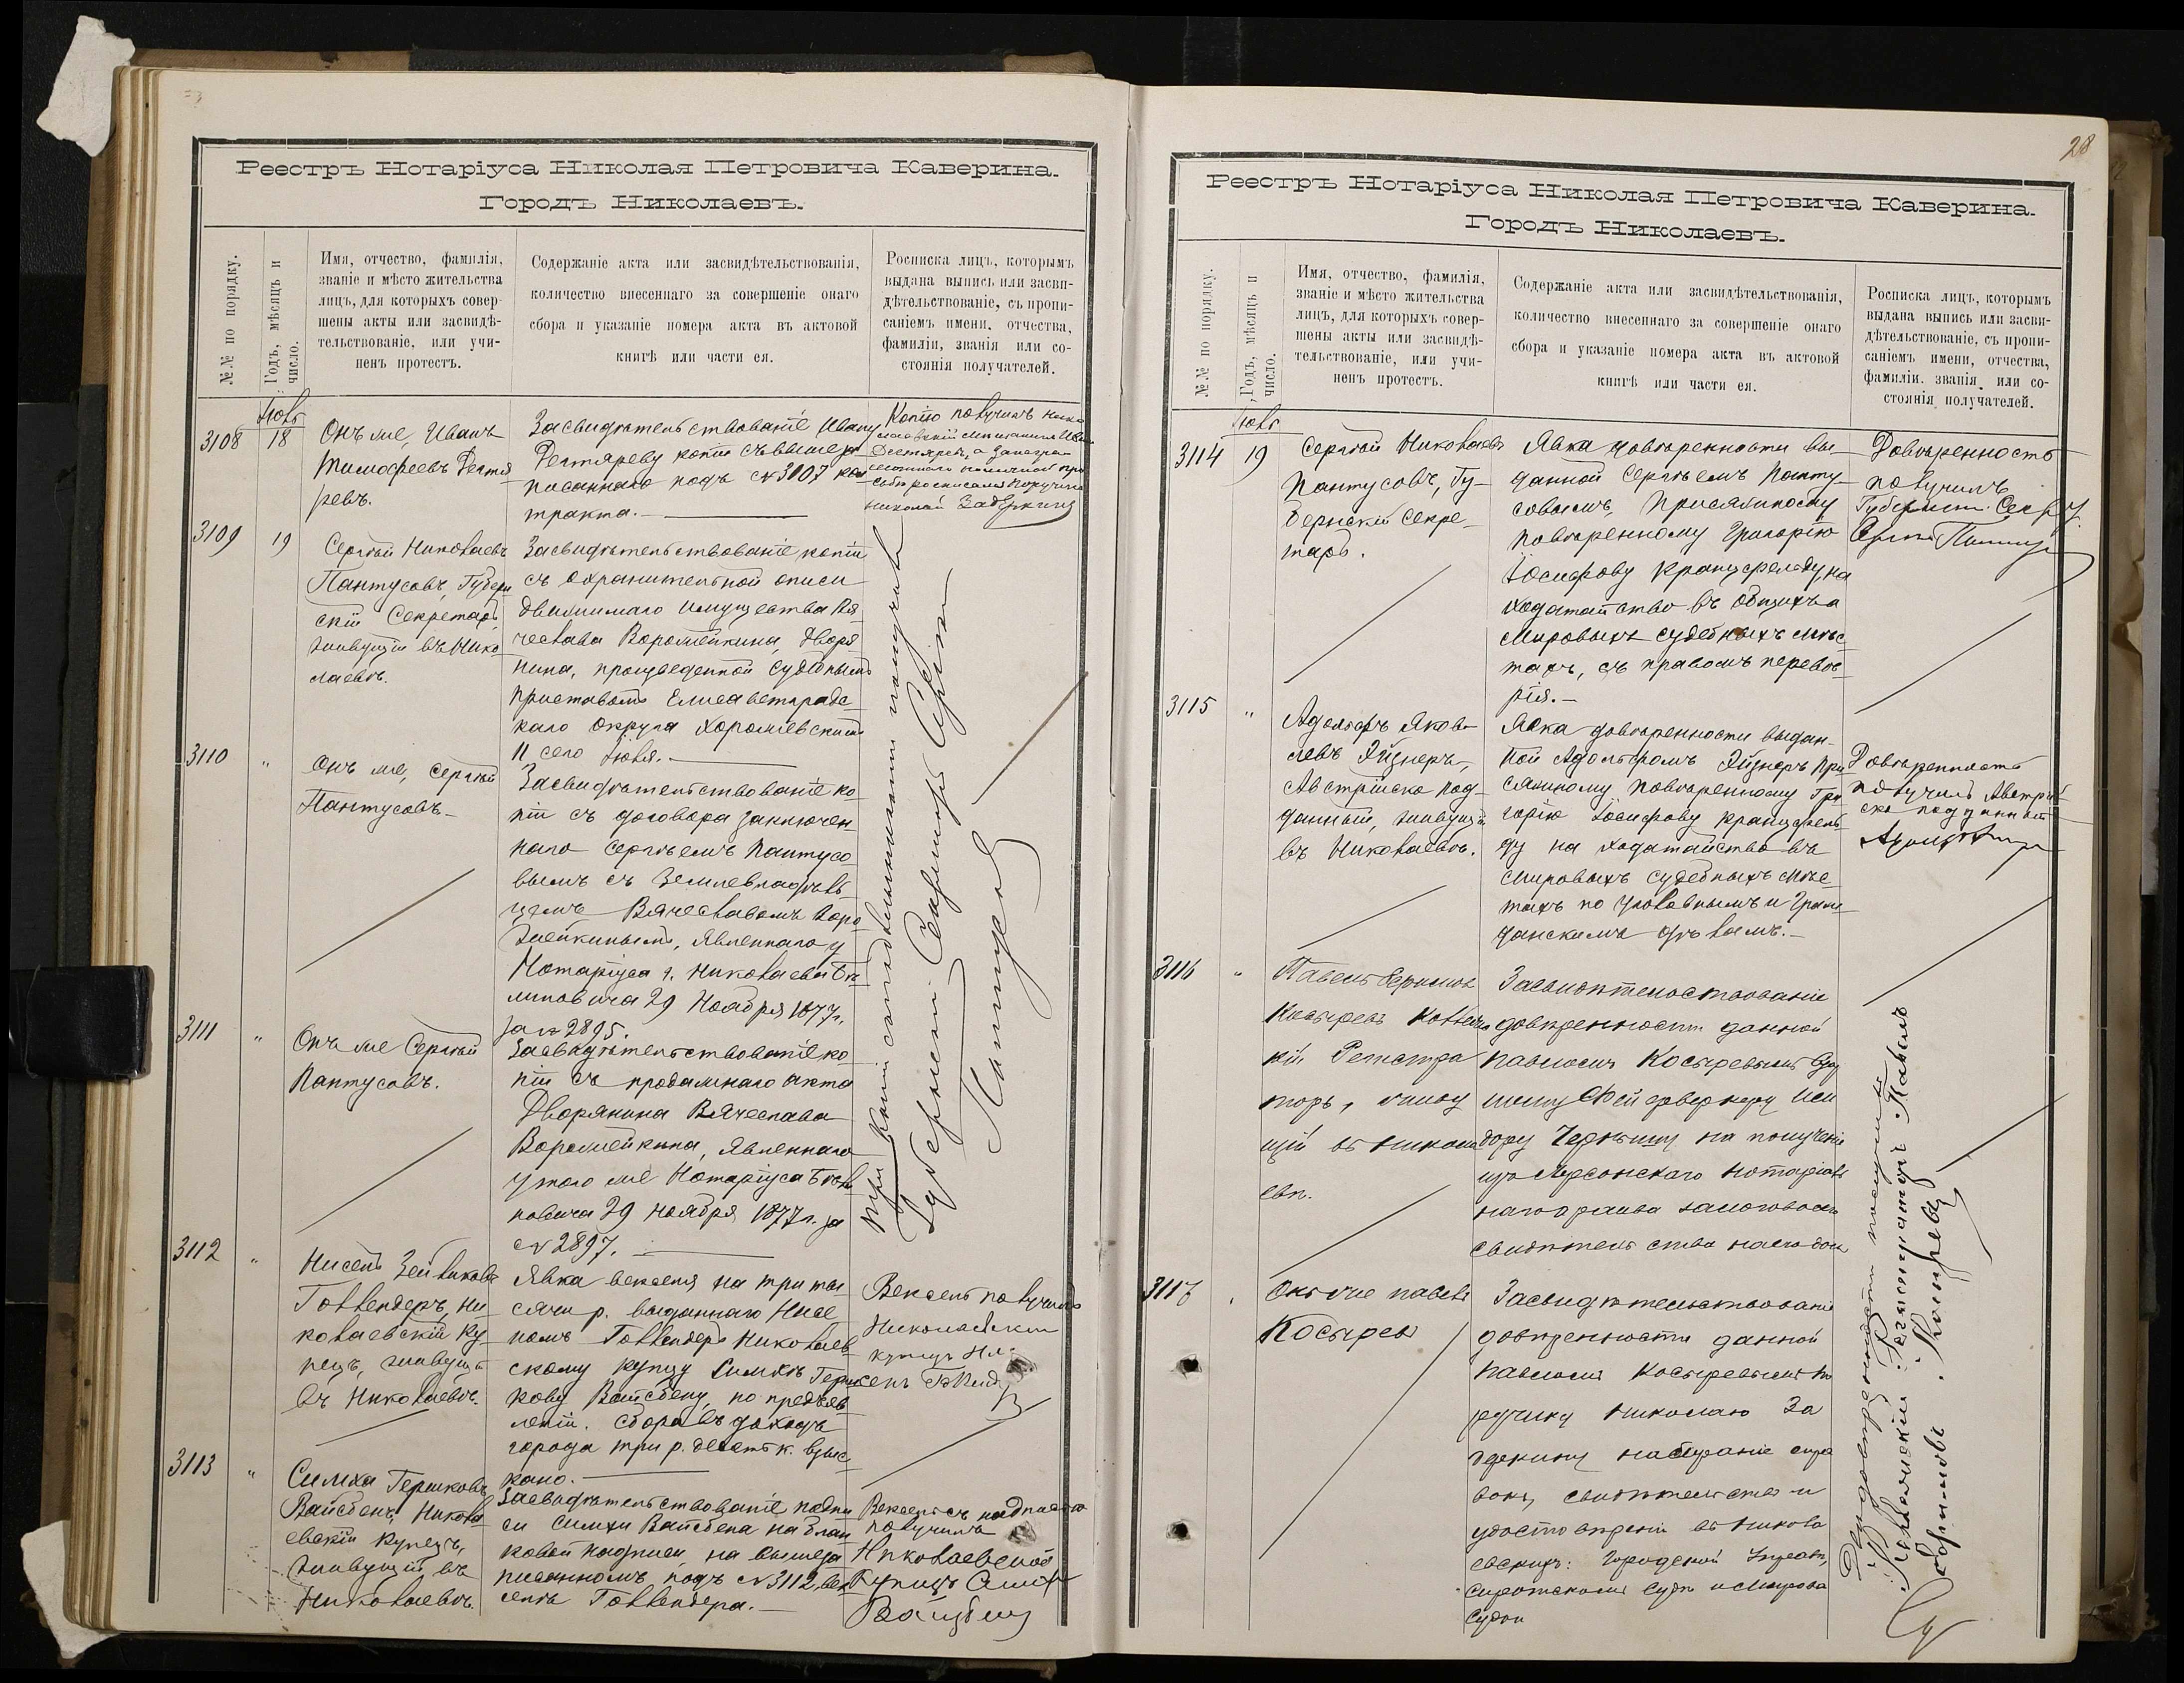 Реестръ Нотаріуса Николая Петровича Каверина.
Городъ Николаевъ.
№№ по порядку.
Годъ, мѣсяцъ и
число.
Имя, отчество, фамилія,
званіе и мѣсто жительства
лицъ, для которыхъ совер-
шены акты или засвидѣ-
тельствованіе, или учи-
ненъ протестъ.
Содержаніе акта или засвидѣтельствованія,
количество внесеннаго за совершеніе онаго
сбора и указаніе номера акта въ актовой
книгѣ или части ея.
Росписка лицъ, которымъ
выдана выпись или засви-
дѣтельствованіе, съ пропи-
саніемъ имени, отчества,
фамиліи, званія или со-
стоянія получателей.
3108
18
Онъ же, Иванъ
Тимофеевъ Дегтя
ревъ.
Засвидѣтельствованіе Ивану
Дегтяреву копіи съ вышеза
писаннаго подъ №3107 кон
тракта.
Копію получилъ Нико
лаевскій Мѣщанинъ Иванъ
Дегтяревъ, а за
Николай Задеркинъ
3109
19
Сергѣй Николаевъ
Пантусовъ, Губерн
скій Секретарь
живущій въ Нико
лаевѣ.
Засвидѣтельствованіе копіи
съ охранительной описи
движимаго имущества Вя
чеслава Воромейкина, Дворя
нина, произведенной Судебнымъ
Приставомъ Елисаветградс-
каго округа
11 сего Іюля.
3110
"
Онъ же, Сергѣй
Пантусовъ
Засвидѣтельствованіе ко-
піи съ договора заключен-
наго Сергѣемъ Пантусо-
вымъ съ Землевладѣль
цемъ Вячеславомъ Воро
мейкинымъ, явленнаго у
Нотаріуса г. Николаева
29 Ноября 1877 г.
за № 2895.
3111
"
Онъ же Сергѣй
Пантусовъ.
Засвидѣтельствованіе ко-
піи съ продажнаго акта
Дворянина Вячеслава
Воромейкина, явленнаго
у того же Нотаріуса
29 Ноября 1877 г. за
№ 2897.
Три копіи получилъ
Губернскій Секретарь Сергѣй
Пантусовъ
3112
"
Нисенъ Зейликовъ
Голлендеръ, Ни-
колаевскій Ку-
пецъ, живущій
въ Николаевѣ.
Явка векселя на три ты-
сячи р. выданнаго Нисе
номъ Голлендеръ Николаев-
скому купцу Симхѣ Герш
кову Вайсбену, по предъяв-
леніи. Сбора въ доходъ
города три р. десять к. взыс-
кано.
Вексель получилъ
Николаевскій
купецъ Ни-
сенъ
3113
"
Симха Гершковъ
Вайсбенъ, Никола
евскій Купецъ,
живущій въ
Николаевѣ.
Засвидѣтельствованіе подпи
си Симхи Вайсбена на блан
ковой надписи, на вышеза
писанномъ подъ №3112, век
селѣ Голлендера.
Вексель съ надписью
получилъ
Николаевскій
Купецъ Симха
Вайсбенъ
28
Реестръ Нотаріуса Николая Петровича Каверина.
Городъ Николаевъ.
№№ по порядку.
Годъ, мѣсяцъ и
число.
Имя, отчество, фамилія,
званіе и мѣсто жительства
лицъ, для которыхъ совер-
шены акты или засвидѣ-
тельствованіе, или учи-
ненъ протестъ.
Содержаніе акта или засвидѣтельствованія,
количество внесеннаго за совершеніе онаго
сбора и указаніе номера акта въ актовой
книгѣ или части ея.
Росписка лицъ, которымъ
выдана выпись или засви-
дѣтельствованіе, съ пропи-
саніемъ имени, отчества,
фамиліи. званія или со-
стоянія получателей.
3114
19
Сергѣй Николаевъ
Пантусовъ, Гу-
бернскій Секре-
тарь.
Явка довѣренности вы-
данной Сергѣемъ Панту-
совымъ, Присяжному
повѣренному Григорію
Іосифову Кранцфельду на
ходатайство въ общихъ и
мировыхъ судебныхъ мѣс
тахъ, съ правомъ передовѣ-
рія.
Довѣренность
получилъ
Губернскій Секр.
3115
"
Адольфъ Яков
левъ Эйзнеръ,
Австрійско под-
данный, живущій
въ Николаевѣ.
Явка довѣренности выдан-
ной Адольфомъ Эйзнеръ при
сяжному повѣренному Гри
горію Іосифову Кранцфель
ду на ходатайство въ
Мировыхъ Судебныхъ мѣс-
тахъ по Уголовнымъ и Граж
данскимъ дѣламъ.
Довѣренность
получилъ Австрій
ско подданный
3116
"
Павелъ
Косыревъ Коллежс
кій Регистра
торъ, живу
щій въ Никола
евѣ.
Засвидѣтельствованіе
довѣренности данной
Павломъ Косыревымъ
Фейерверкеру Иси
дору Чернышу на полученіе
изъ Херсонскаго Нотаріаль
наго архива залоговаго
свидѣтельства на его домъ
3117
Онъ же Павелъ
Косыревъ
Засвидѣтельствованіе
довѣренности данной
Павломъ Косыревымъ По
ручику Николаю За
деркину на бираніе спра
вокъ, свидѣтельствъ и
удостовѣреній въ Никола
евскихъ: Городской Управѣ,
Сиротскомъ Судѣ и Мирова
Судьи
Двѣ довѣренности получилъ
Коллежскій Регистраторъ Павелъ
Косыревъ